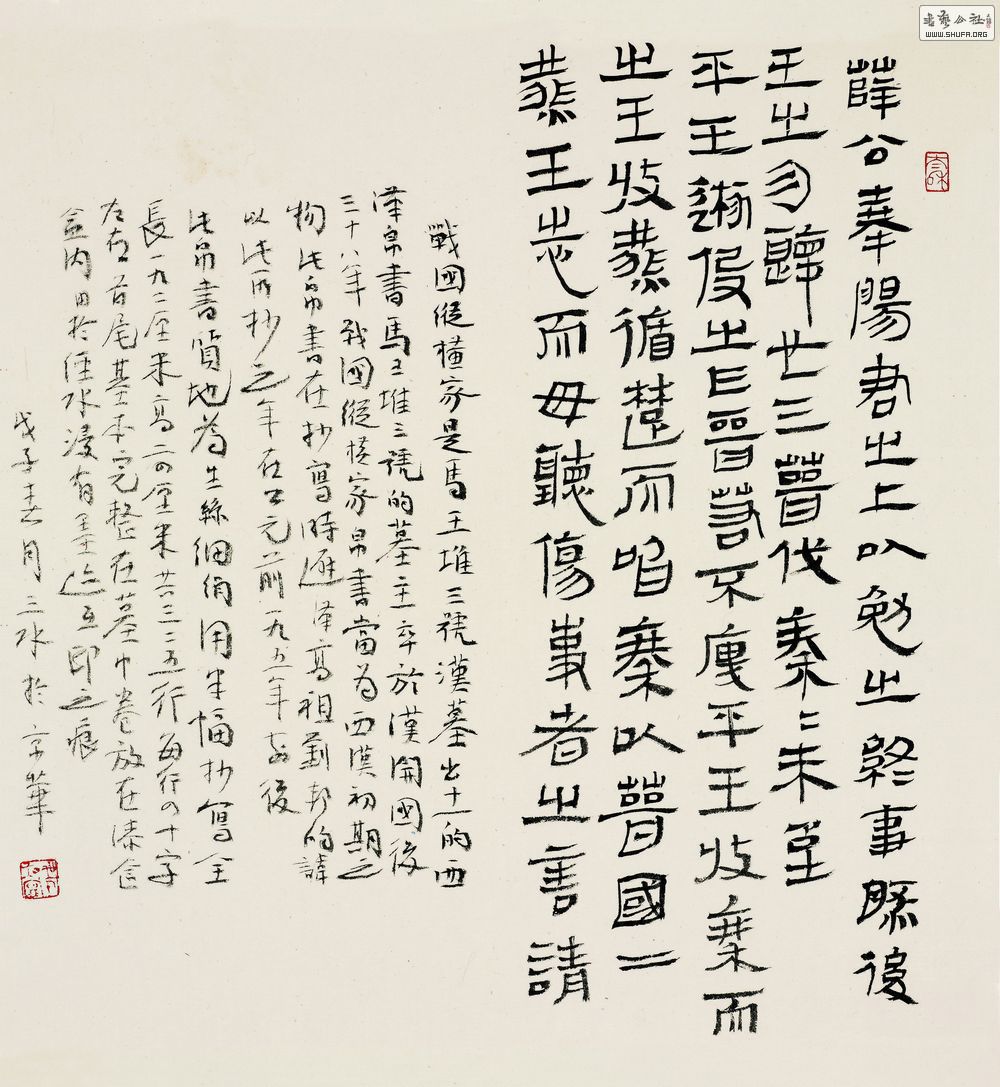 薛公奉陽君之上以勉之終事然後
王之勿也三晉伐秦〻未至
平王之曰晉若不平王收秦而
之王收燕循楚而啗秦以晉國二
燕王志而毋聽傷事者之言請
戰國縱橫家是馬王堆三號漢墓出土的西
漢帛書馬王堆三號的墓主卒於漢開國後
三十八年戰國縱橫家帛書當為西漢初期之
物此帛書在抄寫時避漢高祖劉邦的諱
以此所抄之年在公元前一九五年前後
此帛書質地為生絲細絹用半幅抄寫全
長一九二厘米高二四厘米共三二五行每行四十字
左右首尾基本完整在墓中卷放在漆盒
盒內由於經水浸有墨迹互印之痕
戊子春月三水於京華
書藝公社
WWW.SHUFA.ORG